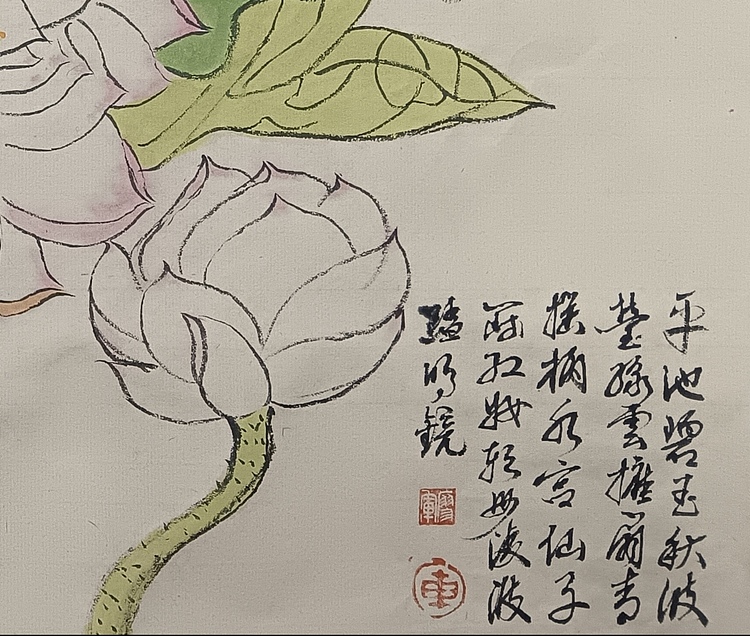 平池碧玉秋波
瑩綠雲擁扇青
摇柄水宫仙子
鬪紅妝輕步凌波
踏明鏡